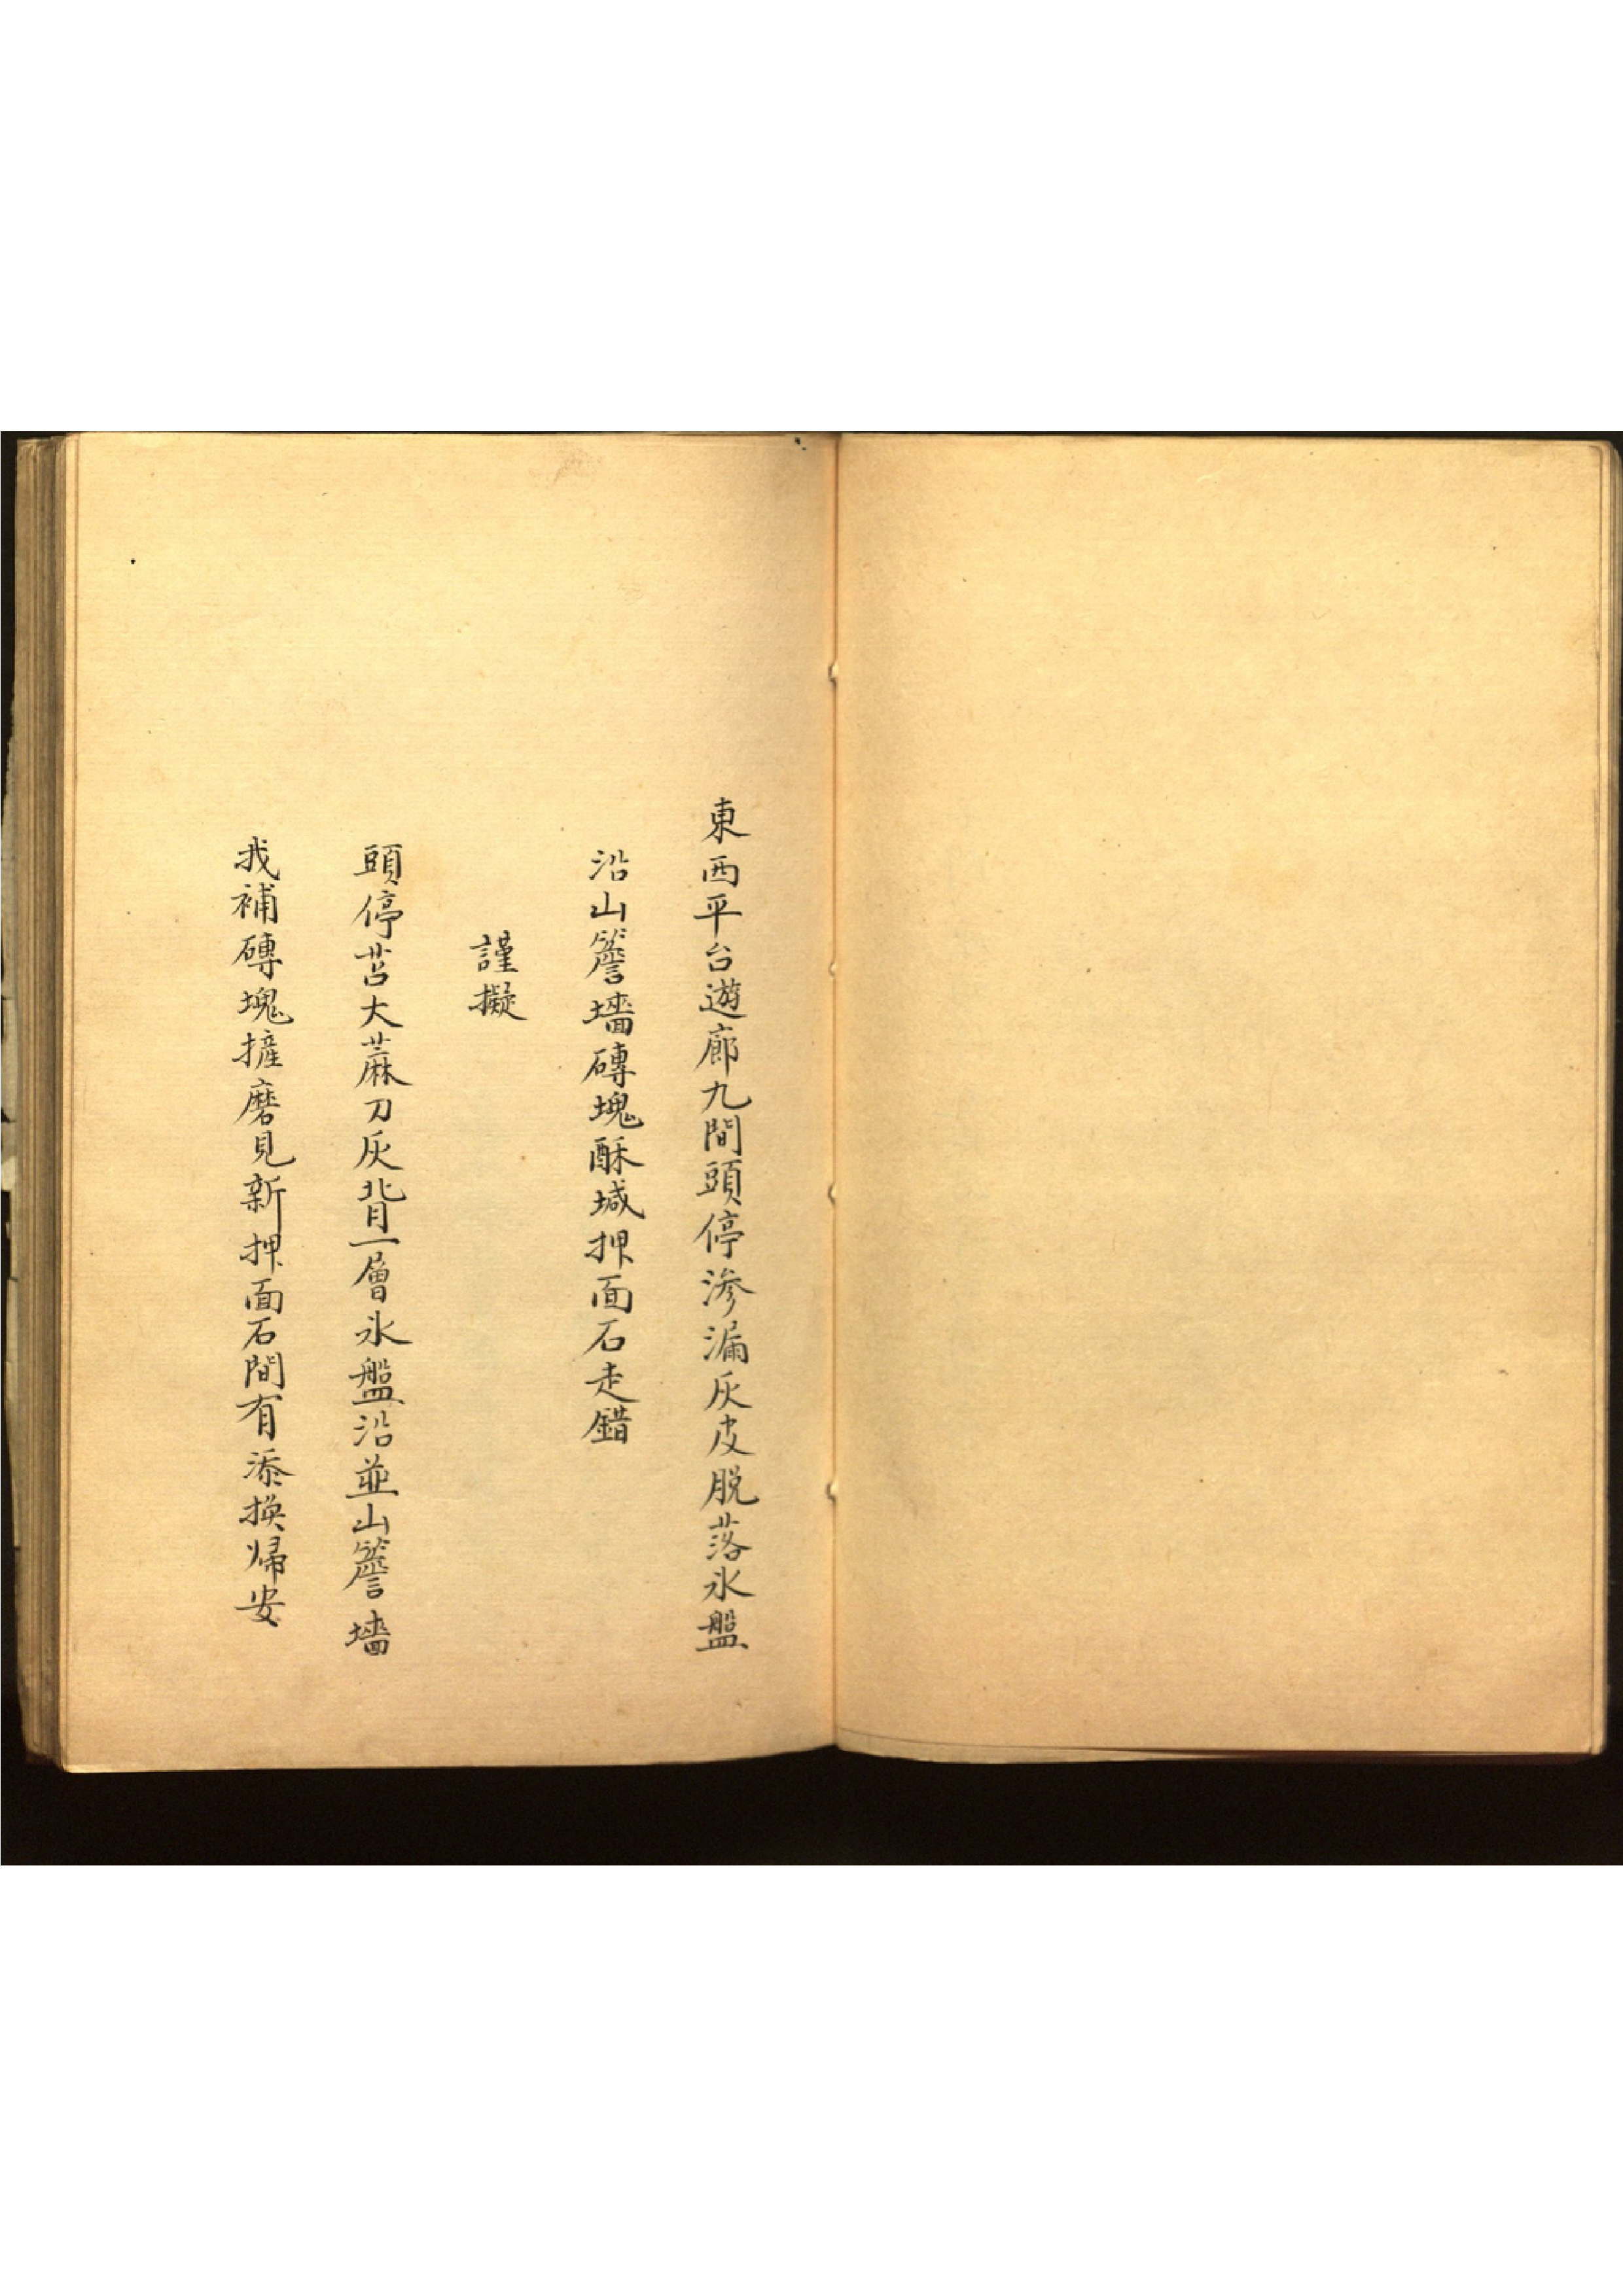 東西平台遊廊九間頭停滲漏灰皮脱落氷盤
沿山簷墻磚塊酥堿押面石走錯
謹擬
頭停苫大蔴刀灰背一層氷盤沿並山簷墻
找補磚塊摌磨見新押面石間有添換歸安